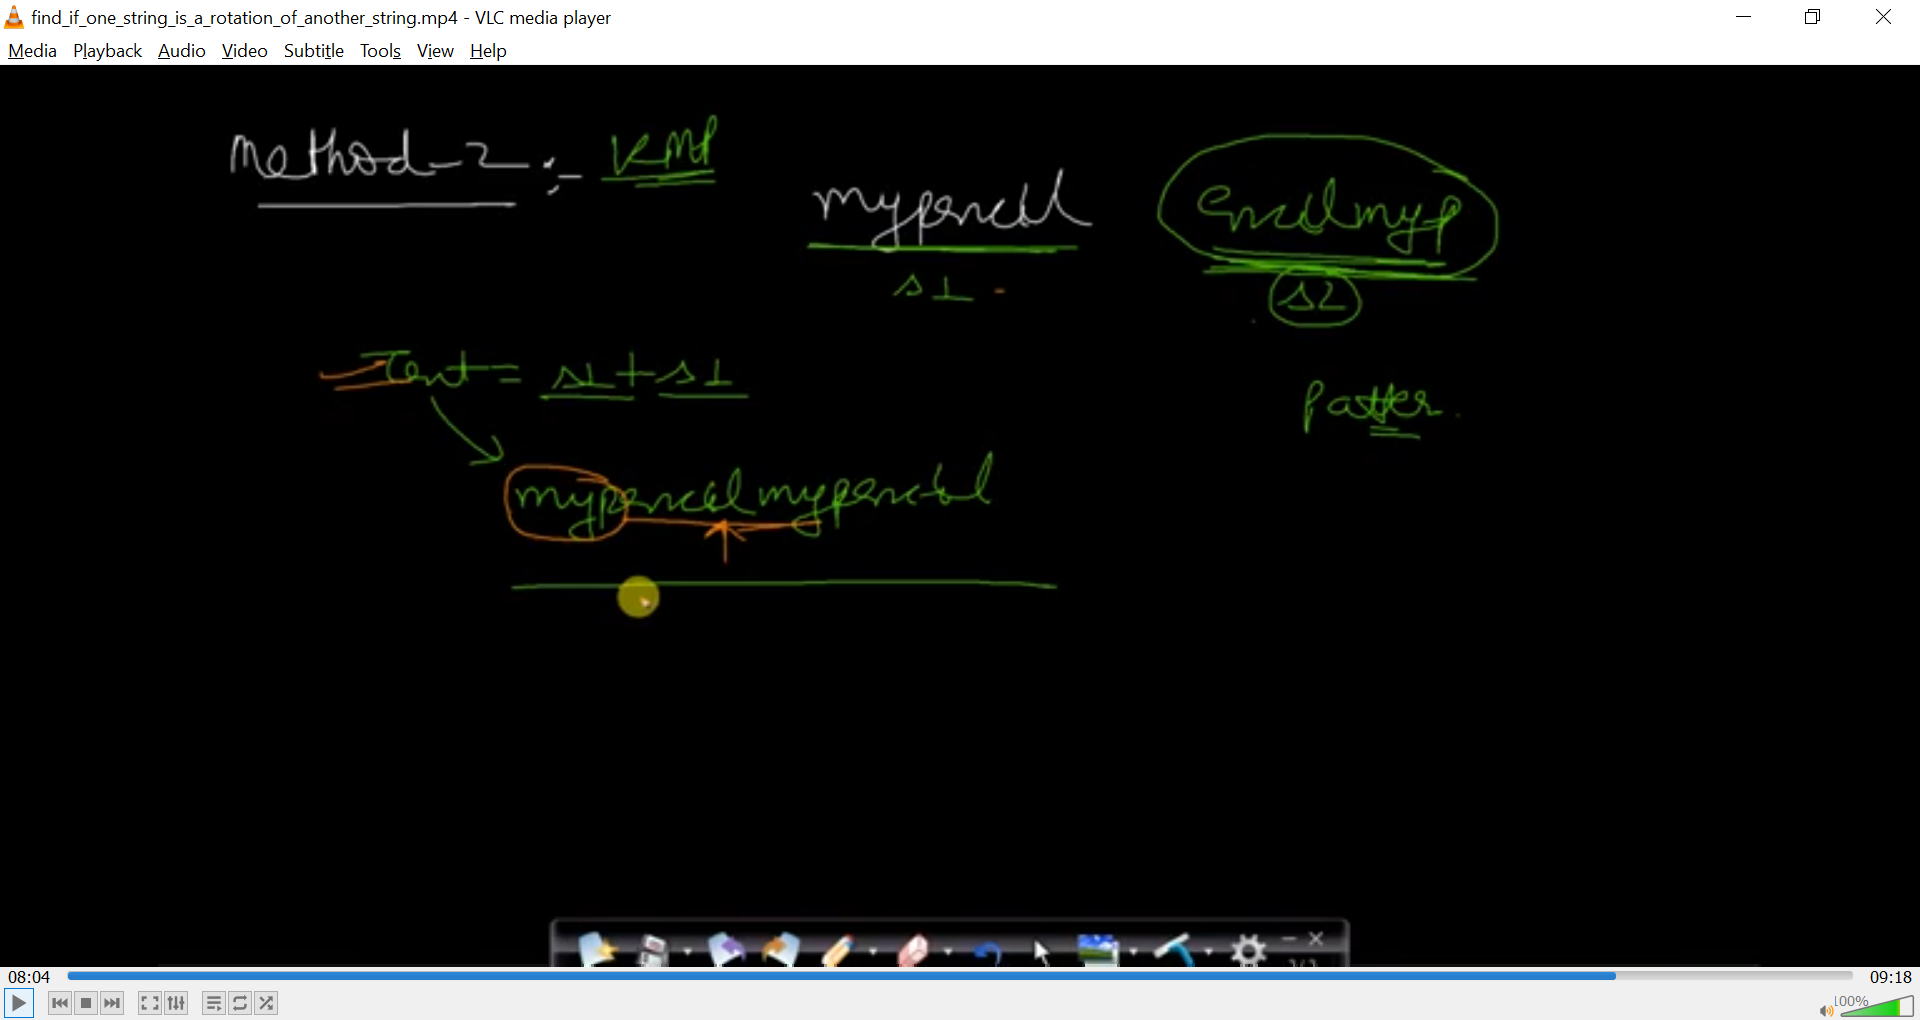 find_if_one_string_is_a_rotation_of_another_string.mp4 - VLC media player
Media Playback Audio Video Subtitle Tools View Help
Method-2 :- KMP
mypencil encilmyp
s1 s2
Text = s1 + s1
Patter
mypencilmypencil
08:04 09:18
100%